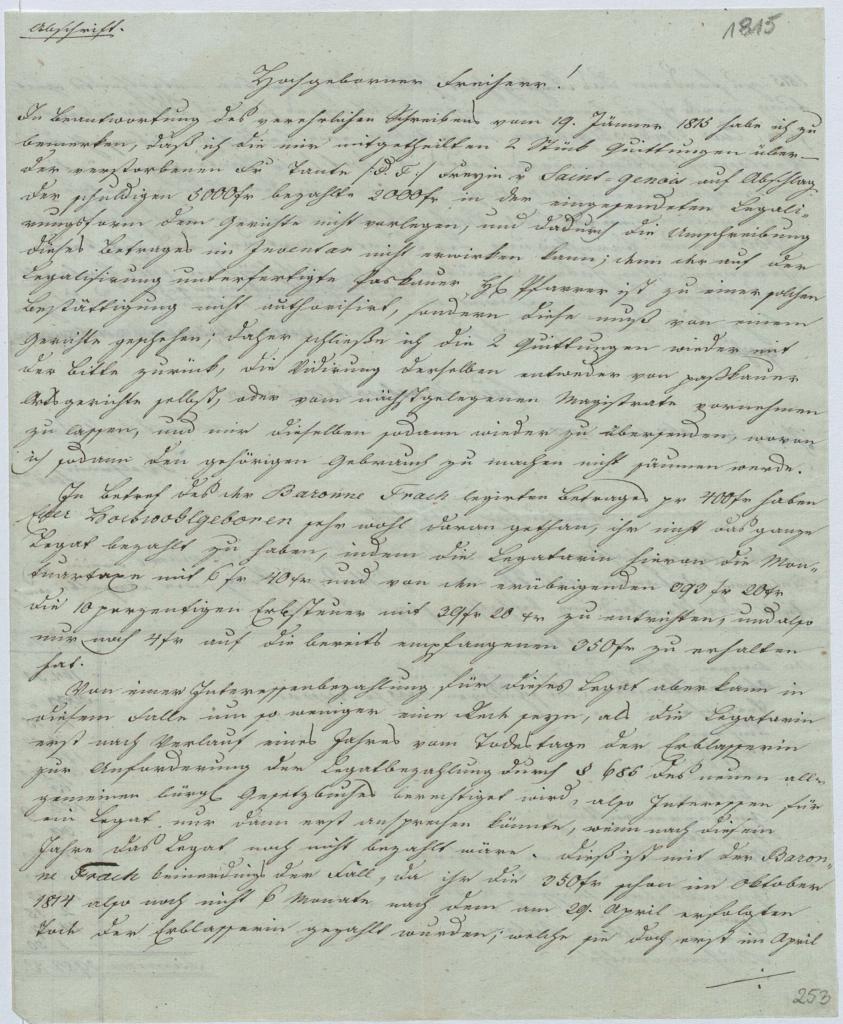 Abschrift.
1815
Hochgeborner Freiherr!
In Beantwortung des verehrlichen Schreibens vom 19. Jänner 1815 habe ich zu
bemerken, daß ich die mir mitgetheilten 2 Stück Quittungen über
der verstorbenen Fr Tante /:d. T:/ Freyin v Saint-Genois auf Abschlag
der schuldigen 5000fr bezahlte 2000fr in der eingesendeten Legali-
sirungsform dem Gerichte nicht vorlegen, und dadurch die Umschreibung
dieses Betrages im Inventar nicht erwirken kann; denn der auf der
Legalisirung unterfertigte Paskauer H Pfarrer ist zu einer solchen
Bestättigung nicht authorisirt, sondern diese muß von einem
Gerichte geschehen; daher schließe ich die 2 Quittungen wieder mit
der Bitte zurück, die Vidirung derselben entweder von paskauer
Ortsgerichte selbst, oder vom nächstgelegenen Magistrate vornehmen
zu lassen, und mir dieselben sodann wieder zu übersenden, wovon
ich sodann den gehörigen Gebrauch zu machen nicht säumen werde.
In Betref des der Baronne Trach legirten Betrages pr 400fr haben
Euer Hochwohlgeboren sehr wohl daran gethan, ihr nicht das ganze
Legat bezahlt zu haben, indem die Legatarin hievon die Mor-
tuartaxe mit 6 fr 40 xr und von den erübrigenden 393 fr 20xr
die 10 perzentigen Erbsteuer mit 39fr 20 xr zu entrichten, und also
nur noch 4fr auf die bereits empfangenen 350fr zu erhalten
hat.
Von einer Interessenbezahlung für dieses Legat aber kann in
diesem Falle um so weniger eine Rede seyn, als die Legatarin
erst nach Verlauf eines Jahres vom Todestage der Erblasserin
zur Anforderung der Legatbezahlung durch § 685 des neuen all-
gemeinen bürgl Gesetzbuches berechtiget wird, also Interessen für
ein Legat nur dann erst ansprechen könnte, wenn nach diesem
Jahre das Legat noch nicht bezahlt wäre. Dieß ist mit der Baron-
ne Trach keinerdings der Fall, da ihr die 350fr schon im Oktober
1814 also noch nicht 6 Monate nach dem am 29. April erfolgten
Tode der Erblasserin gezahlt wurden; welche sie doch erst im April
./.
253